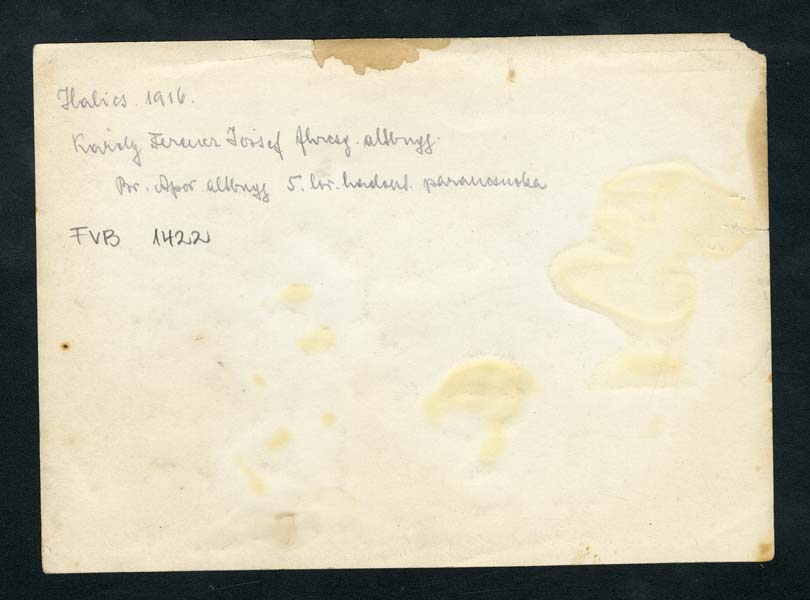 Halics. 1916.
Károly Ferencz József főhrczg. altbngy.
Br. Apor altbngy 5. lov. hadoszt. parancsnoka
FVB 1422